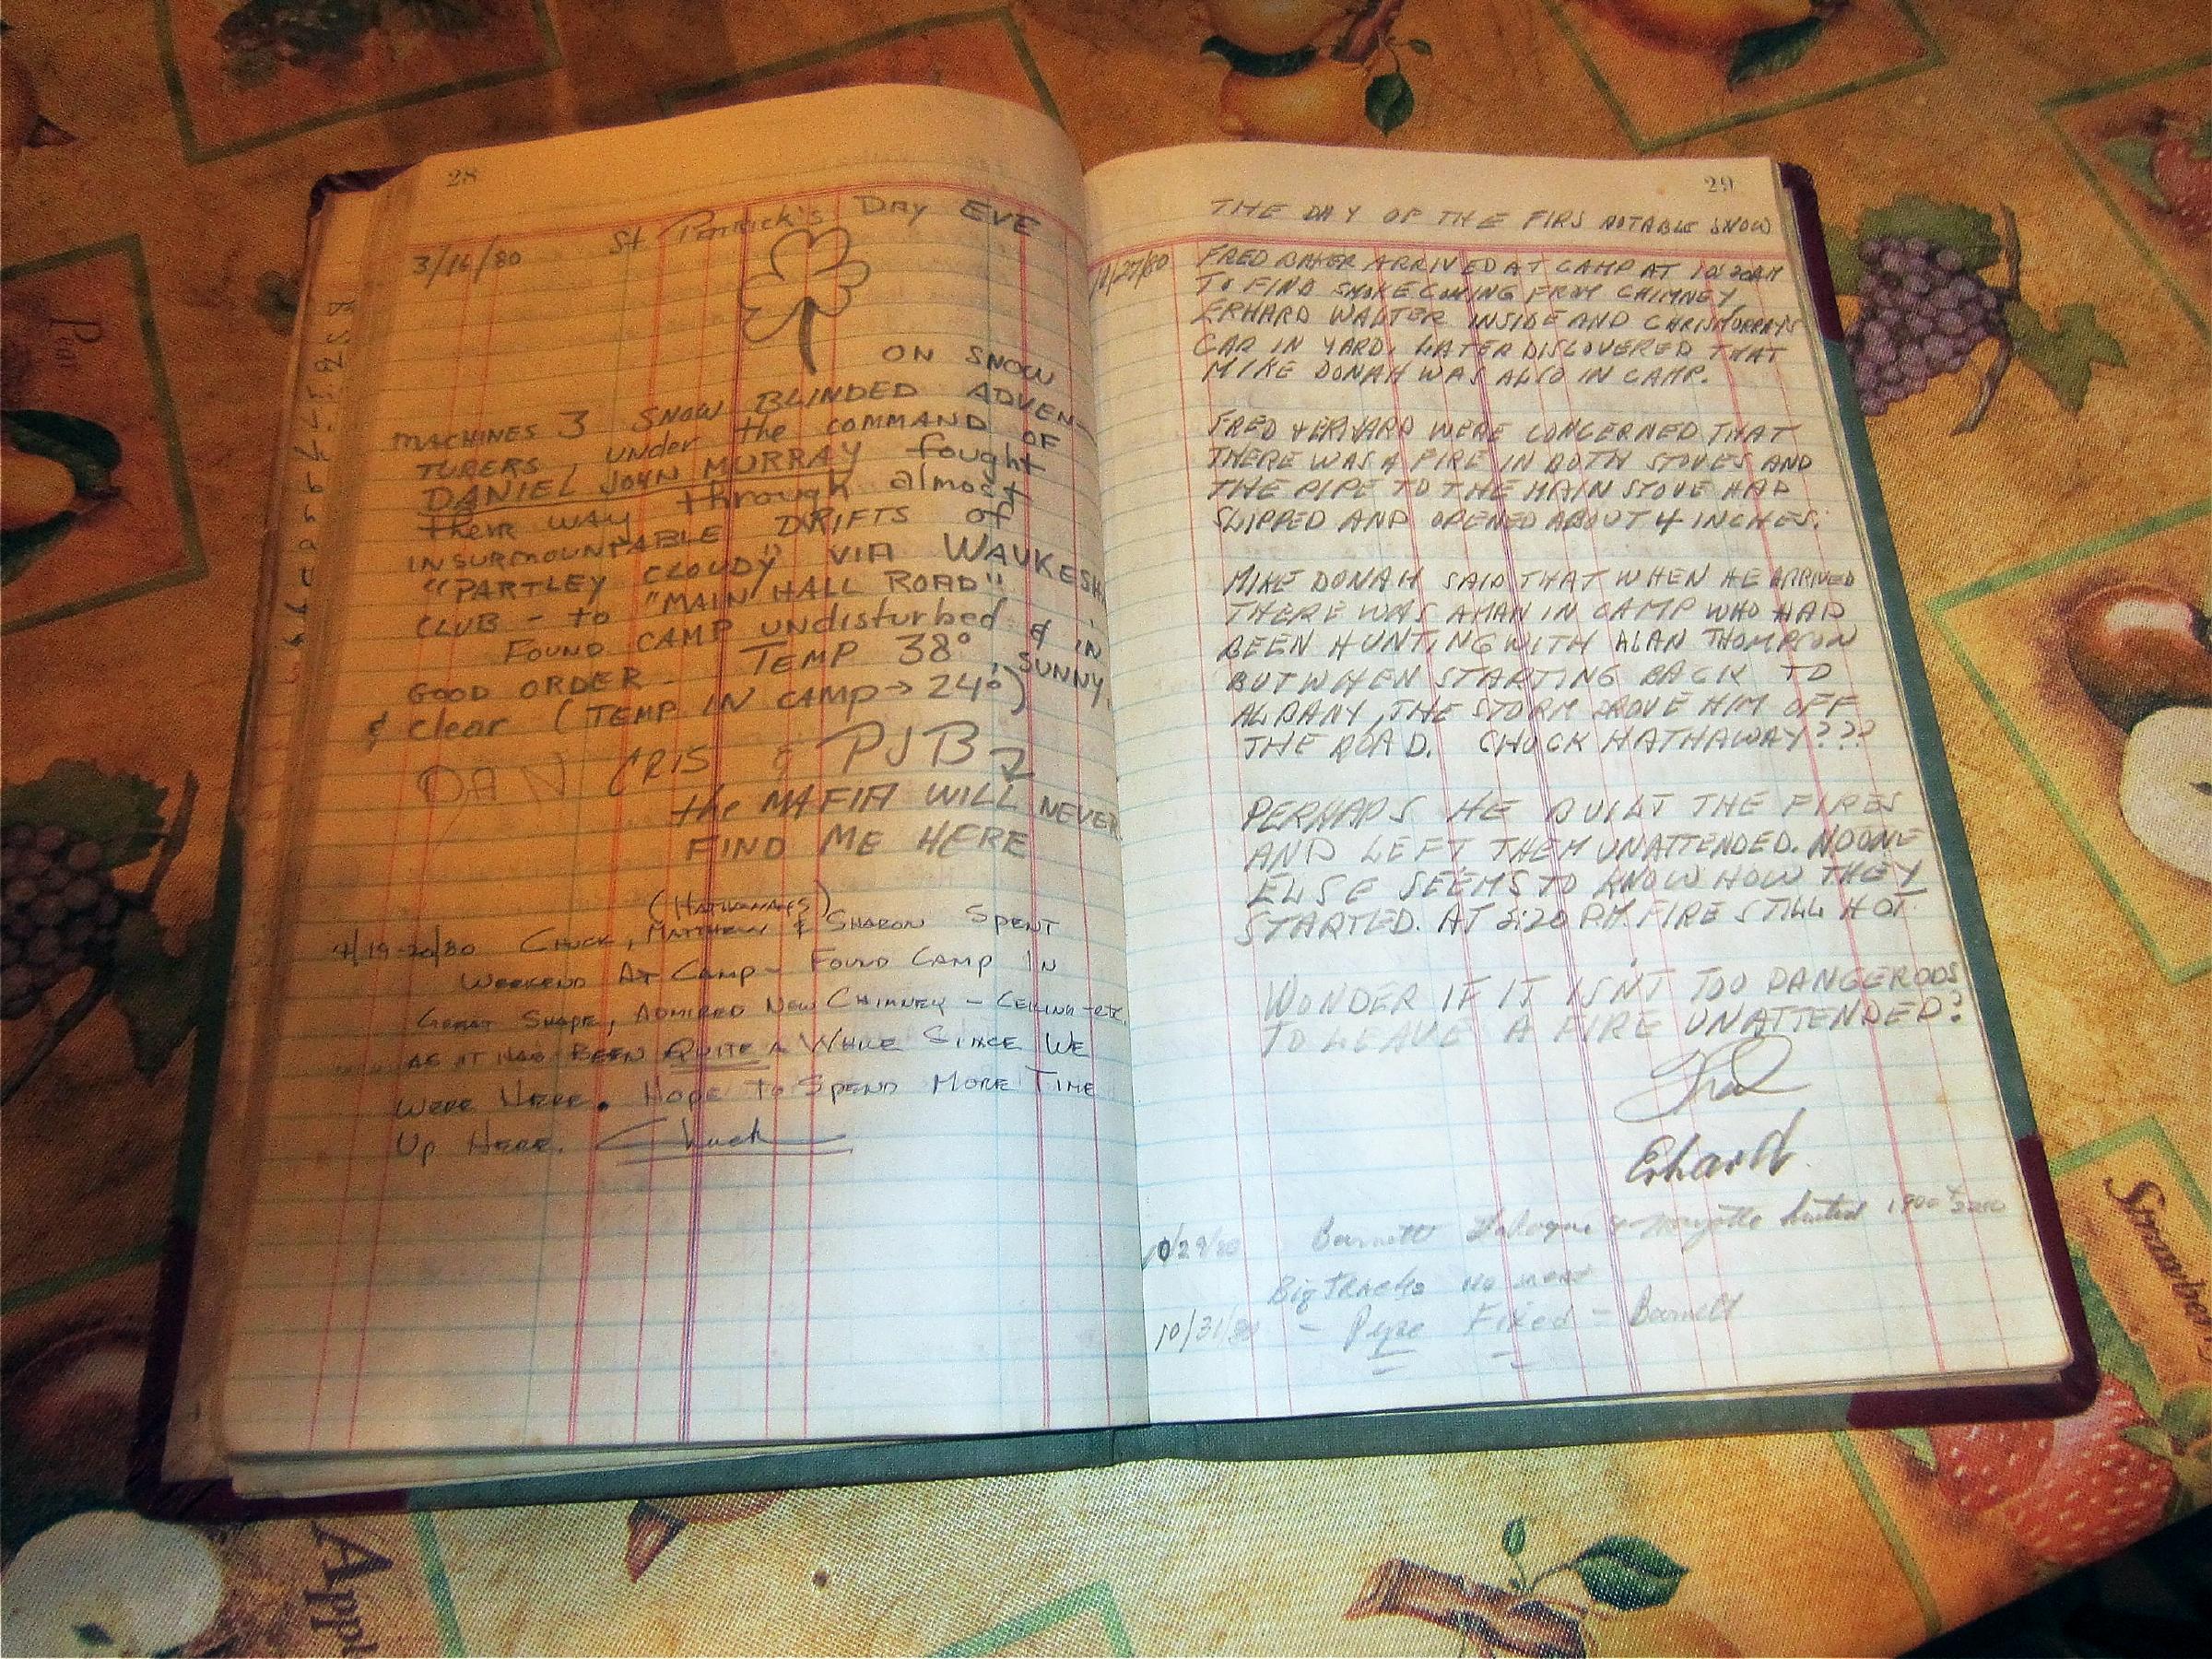 28
St Patrick's Day EVE
3/16/80
ON SNOW
MACHINES 3 SNOW BLINDED ADVEN-
TURERS, under the COMMAND OF
DANIEL JOHN MURRAY fought
their way through almost
INSURMOUNTABLE DRIFTS of
"PARTLEY CLOUDY" VIA WAUKESHA
CLUB - to "MAIN HALL ROAD".
FOUND CAMP undisturbed & IN
GOOD ORDER - TEMP 38°, SUNNY,
& clear (TEMP IN CAMP → 24°)
DAN CRIS & PJB
the MAFIA WILL NEVER
FIND ME HERE
(HATHAWAYS)
4/19-20/80 CHUCK, MATTHEW & SHARON SPENT
WEEKEND AT CAMP - FOUND CAMP IN
GREAT SHAPE, ADMIRED NEW CHIMNEY - CEILING - ETC.
AS IT HAS BEEN QUITE A WHILE SINCE WE
WERE HERE. HOPE TO SPEND MORE TIME
UP HERE. Chuck
29
THE DAY OF THE FIRS NOTABLE SNOW
10/27/80 FRED BAKER ARRIVED AT CAMP AT 10:20AM
TO FIND SMOKE COMING FROM CHIMNEY,
ERHARD WALTER INSIDE AND CHRIS MURRAY'S
CAR IN YARD. LATER DISCOVERED THAT
MIKE DONAH WAS ALSO IN CAMP.
FRED & ERHARD WERE CONCERNED THAT
THERE WAS A FIRE IN BOTH STOVES AND
THE PIPE TO THE MAIN STOVE HAD
SLIPPED AND OPENED ABOUT 4 INCHES.
MIKE DONAH SAID THAT WHEN HE ARRIVED
THERE WAS A MAN IN CAMP WHO HAD
BEEN HUNTING WITH ALAN THOMPSON
BUT WHEN STARTING BACK TO
ALBANY, THE STORM DROVE HIM OFF
THE ROAD. CHUCK HATHAWAY???
PERHAPS HE BUILT THE FIRES
AND LEFT THEM UNATTENDED. NO ONE
ELSE SEEMS TO KNOW HOW THEY
STARTED. AT 2:20 P.M. FIRE STILL HOT.
WONDER IF IT ISN'T TOO DANGEROUS
TO LEAVE A FIRE UNATTENDED?
Fred
Erhard
10/29/80 Barnett & hunted
Big tracks no more
10/31/80 - Pype Fixed = Barnett
Pear
Apple
Strawberry